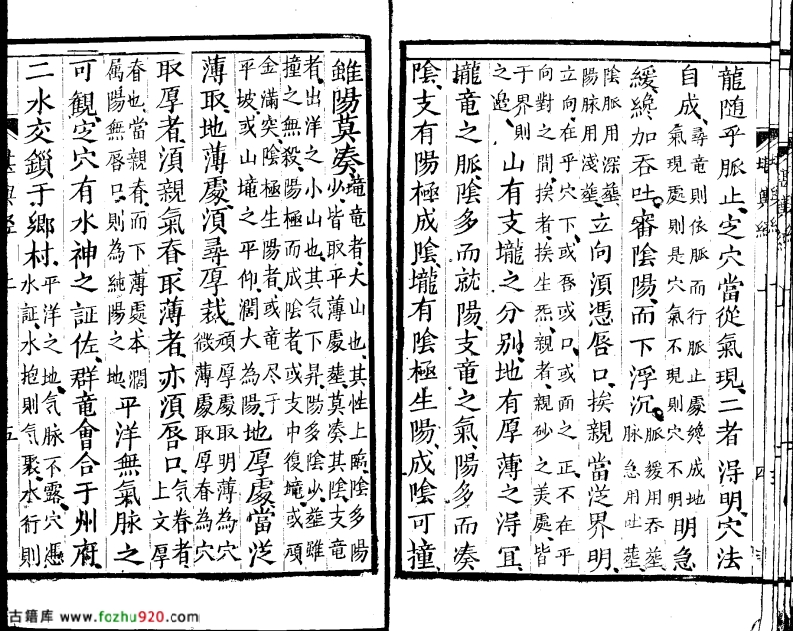 龍随乎脉止、定穴當從氣現、二者淂明、穴法
自成、尋竜則依脈而行脈止處縂成地氣現處則是穴氣不現則穴不明明急
緩、縂加吞吐、審陰陽、而下浮沉、脈緩用吞塟脉急用吐塟
陰脈用深塟陽脉用淺塟立向湏憑唇口、挨親當從界明、
立向、在乎穴下、或唇或口、或面之正、不在乎向對之間、挨者、挨生炁、親者、親砂之美處、皆
于界則之邉、山有支壠之分别、地有厚薄之淂宜、
壠竜之脈、陰多而就陽、支竜之氣、陽多而凑
陰、支有陽極成陰、壠有陰極生陽、成陰可撞、
雖陽莫凑、壠竜者、大山也、其性上臨、陰多陽少、皆取平薄處塟、莫凑其陰、支竜
者、出洋之小山也、其气下昇、陽多陰少、塟雖撞之無殺、陽極而成陰者、或支中復壠、或頑
金滿突、陰極生陽者、或竜尽于平坡、或山壠之平仰、濶大為陽、地厚處當從
薄取、地薄處、湏尋厚裁、頑厚處取明薄為穴微薄處取厚眷為穴
取厚者、湏親氣眷、取薄者、亦湏唇口、气眷者上文厚
眷也、當親眷、而下薄處本濶属陽無唇口、則為純陽之地、平洋無氣脉之
可観、定穴有水神之証佐、群竜會合于州府、
二水交鎖于鄉村、平洋之地、気脉不露、穴憑水証、水抱則气聚、水行則
堪輿經 上
五
四
古籍库 www.fozhu920.com